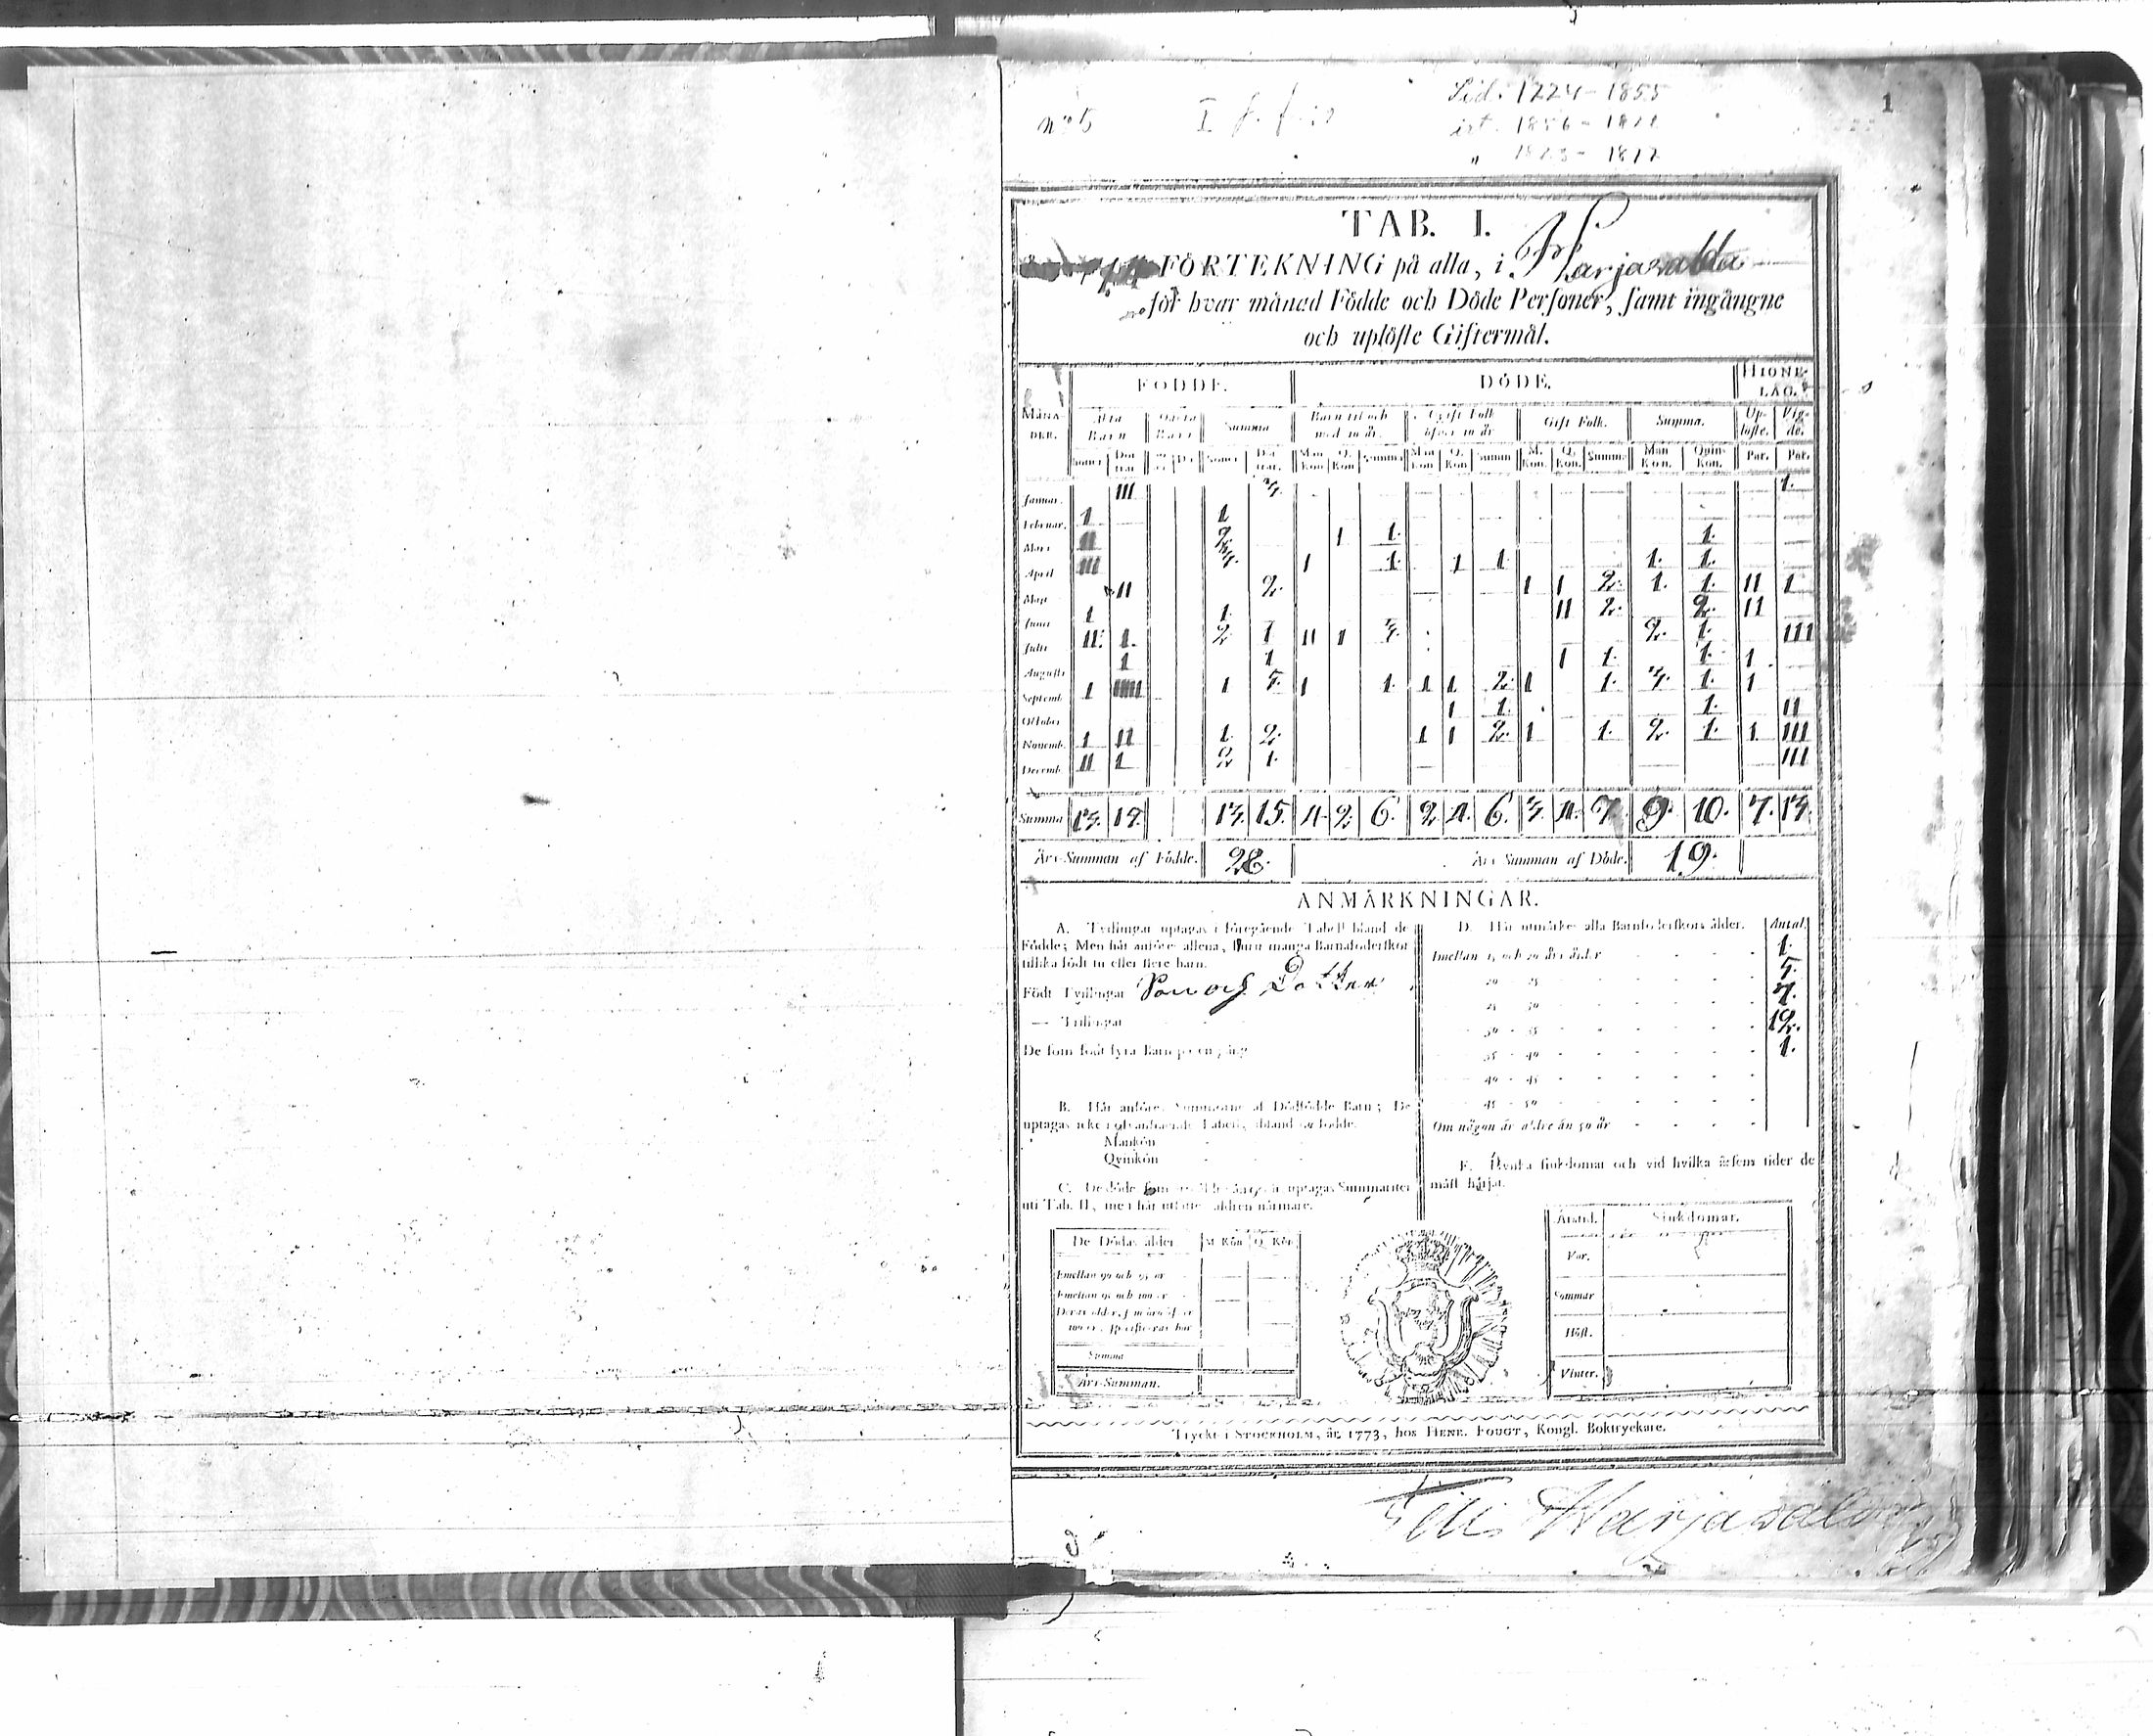 1
TAB. I.
FÖRTEKNING på alla, i Harjavalda
för hvar månad Födde och Döde Personer, samt ingångne
och uplöste Giftermål.
FÖDDE. DÖDE. HIONE-LAG.
MÅNA-DER. Äkta Barn Oäkta Barn Summa Barn til och med 10 år. Ogift Folk öfver 10 år Gift Folk. Summa. Up-löste. Vig-de.
Söner Döt-trar Söner Döt-trar. Man Kön Q. Kön Summa Man kön Q. Kön Summ M. Kön. Q. Kön. Summa Man Kön. Qvin-Kön. Par. Par.
Januar. III 3. 1.
Februar. 1 1
Mart. II 2. 1 1. 1.
April III 3. 1 1. 1 1. 1. 1.
Maji II 2. 1 1 2. 1. 1. II 1
Junii 1 1. II 2. 2. II
Julii II. 1. 2. 1 II 1 3. 2. 1. III
Augusti 1 1 1 1. 1. 1.
Septemb. 1 IIIII 1 5. 1 1. 1 1 2. 1 1. 3. 1. 1
October 1 1. 1. II
Novemb. 1 II 1. 2. 1 1 2. 1 1. 2. 1. 1 III
Decemb. II 1 2 1. III
Summa 13. 15. 13. 15. 4. 2. 6. 2. 4. 6. 3. 4. 7. 9. 10. 7. 13.
Års-Summan af Födde. 28. Års Summan af Döde. 19.
ANMÄRKNINGAR.
A. Tvillingar uptagas i föregående Tabell bland de
Födde; Men här anföres allena, huru många Barnaföderskor
tillika födt tu eller flere barn.
Födt Tvillingar Son och Dotter
— Trillingar
De som födt fyra Barn på en gång
B. Här anföres Summorne af Dödfödde Barn; De
uptagas icke i ofvanstående Tabell, ibland de födde.
Mankön
Qvinkön
uti Tab. II, men här utföres åldren närmare.
De Dödas ålder M. Kön Q. Kön
Emellan 90 och 95 år
Emellan 95 och 100 år
Summa
Års-Summan.
D. Här utmärkes alla Barnföderskors ålder. Antal.
Imellan 15 och 20 års ålder 1.
20 - 25 5.
25 - 30 7.
30 - 35 12.
35 - 40 1.
40 - 45
45 - 50
Om någon är äldre än 50 år
E. Hvilka siukdomar och vid hvilka årsens tider de
mäst härjat.
Årstid. Siukdomar.
Vår.
Sommar
Höst.
Vinter.
Tryckt i STOCKHOLM, år 1773, hos HENR. FOUGT, Kongl. Boktryckare.